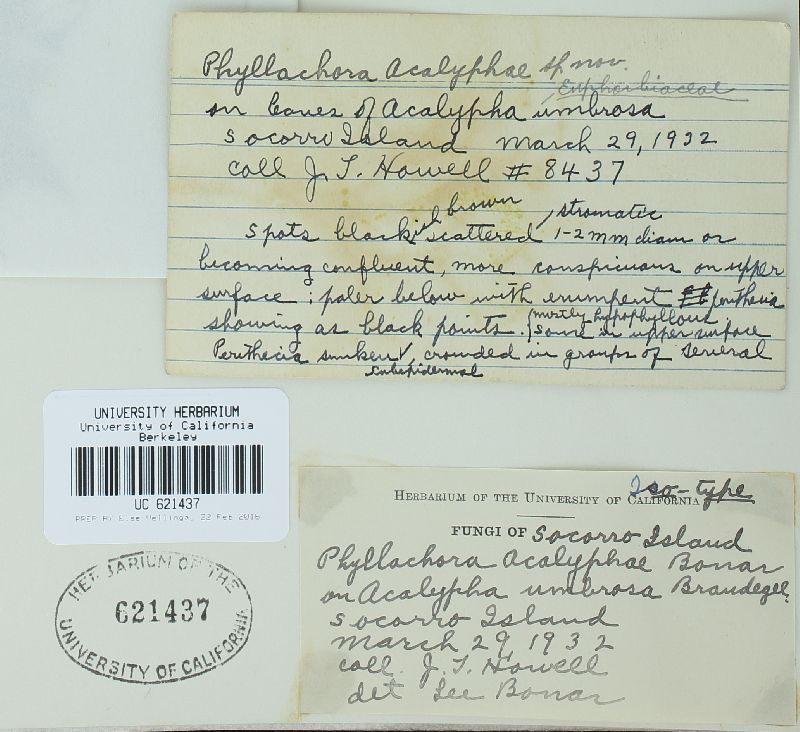 Phyllachora Acalyphae sp nov.
Euphorbiaceae
on leaves of Acalypha umbrosa
Socorro Island March 29, 1932
coll J. T. Howell # 8437
brown stromatic
Spots blackish scattered, 1-2 mm diam or
becoming confluent, more conspicuous on upper
surface; paler below with erumpent perithecia
showing as black points. (mostly hypophyllous
some in upper surface
Perithecia sunken, crowded in groups of several
subepidermal
UNIVERSITY HERBARIUM
University of California
Berkeley
UC 621437
PREP BY Else Vellinga, 22 Feb 2016
HERBARIUM OF THE
621437
UNIVERSITY OF CALIFORNIA
Iso-type
HERBARIUM OF THE UNIVERSITY OF CALIFORNIA
FUNGI OF Socorro Island
Phyllachora Acalyphae Bonar
on Acalypha umbrosa Brandegee,
Socorro Island
March 29, 1932
coll. J. T. Howell
det Lee Bonar